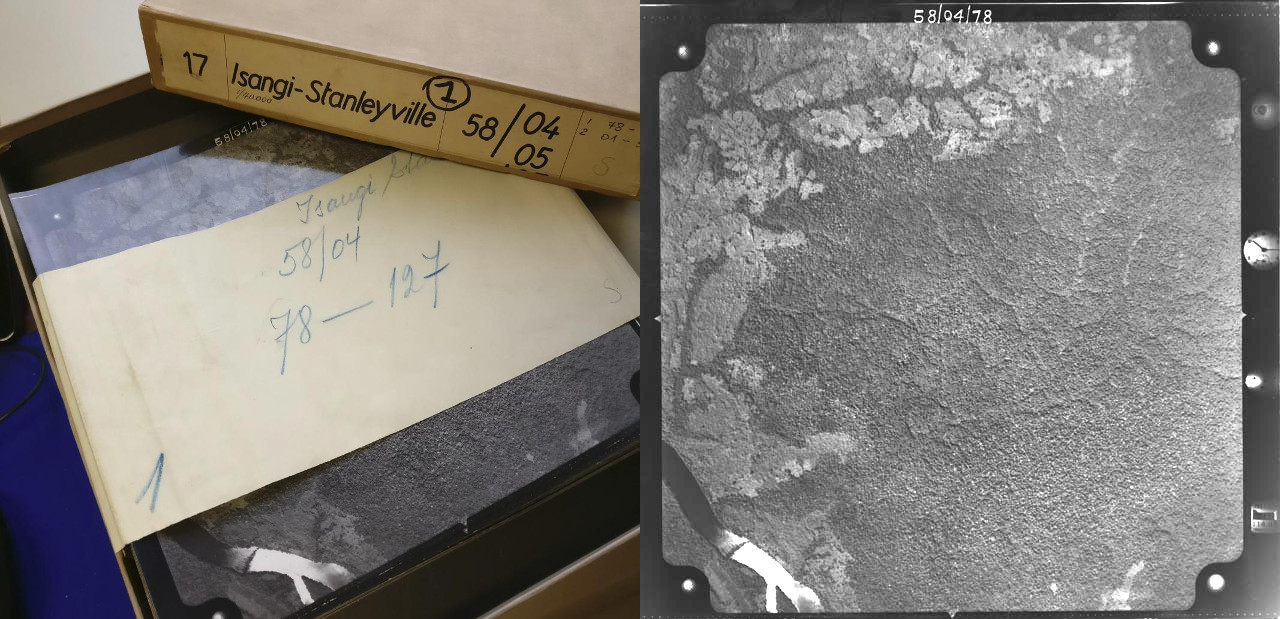 17
Isangi-Stanleyville
1/40000
1
58/04
05
1 78-
2 01-
S
58/04/78
Isangi Sta
58/04
78 — 127
S
1
58/04/78